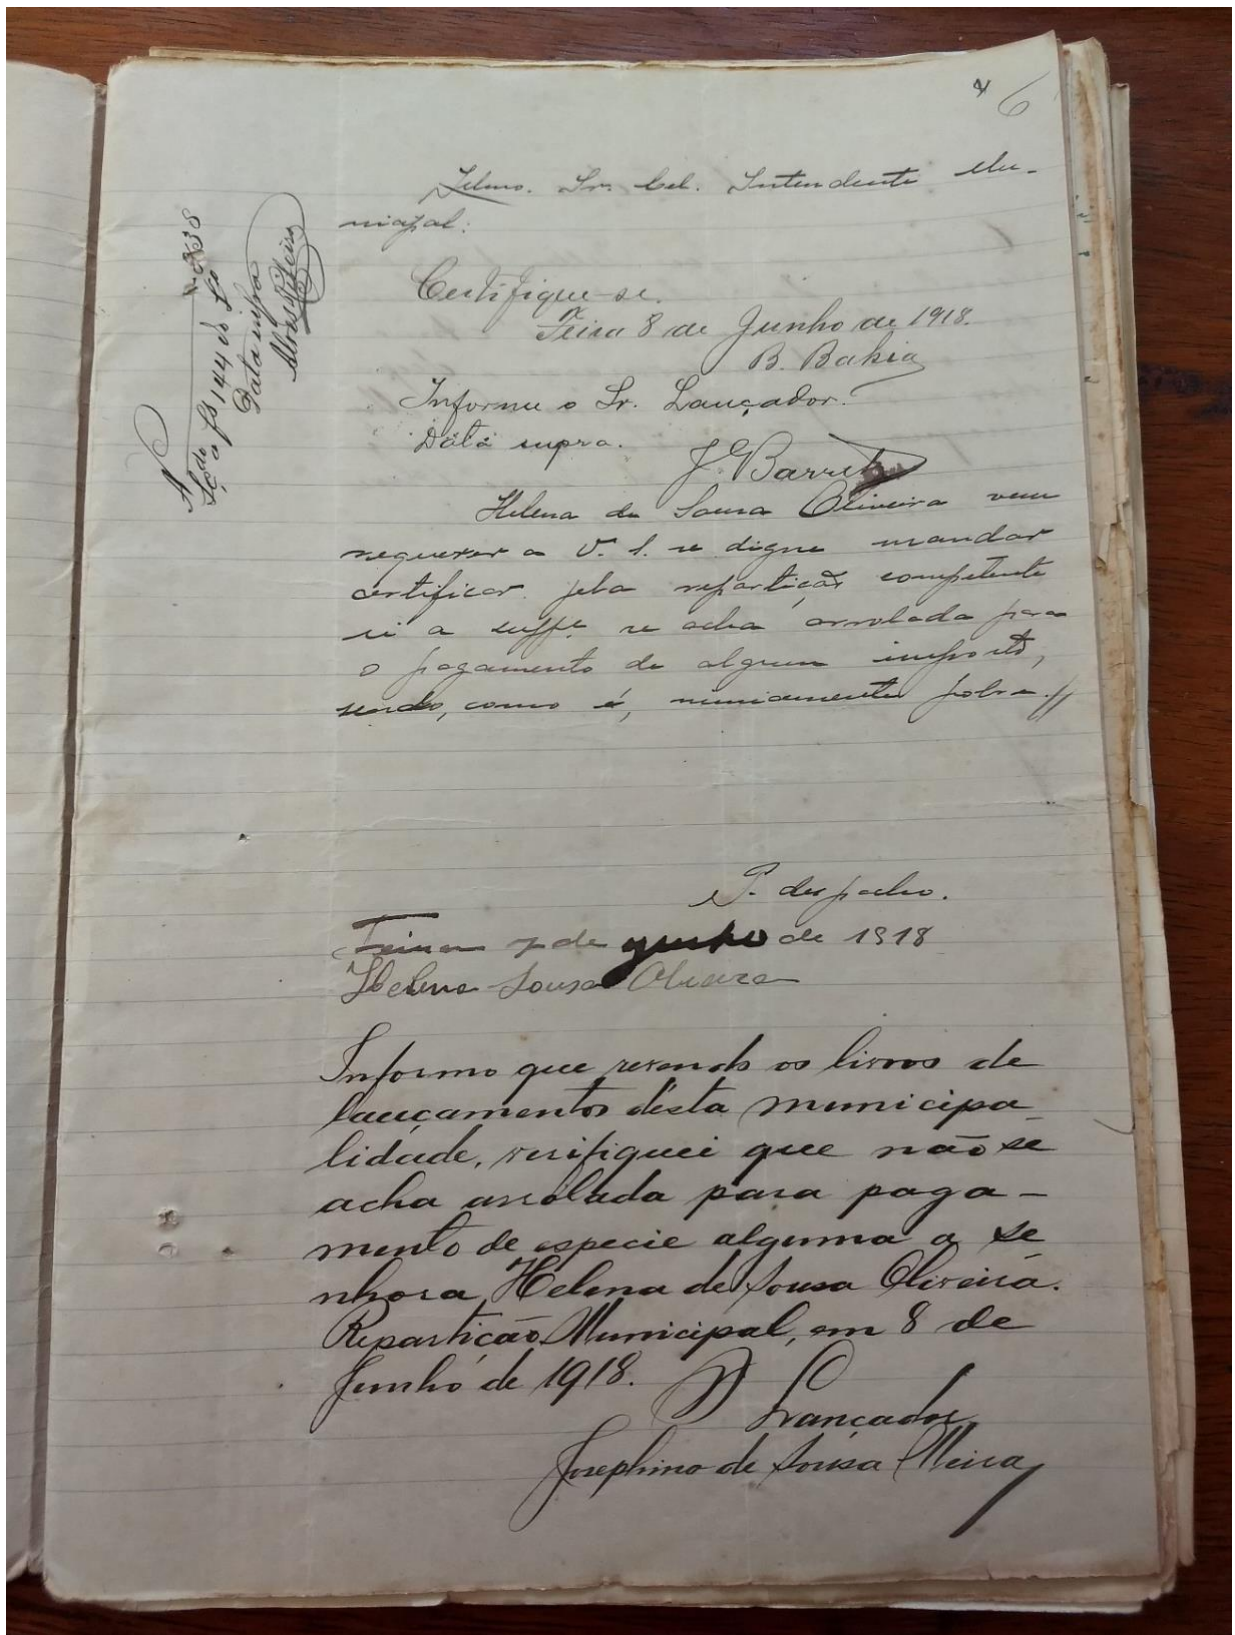 6
Illmo. Sr. Cel. Intendente Mu-
nicipal:
Certifique-se.
Feira 8 de Junho de 1918.
B. Bahia
Informe o Sr. Lançador.
Data supra.
J. Barretto
Helena de Sousa Oliveira vem
requerer a V. S. se digne mandar
certificar pela repartição competente
si a suppe. se acha arrolada para
o pagamento de algum imposto,
sendo, como é, nimiamente pobre.//
P. despacho.
Feira 7 de junho de 1918
Helena Sousa Oliveira
Informo que revendo os livros de
lançamentos désta municipa-
lidade, verifiquei que não se
acha arrolada para paga-
mento de especie alguma a se
nhora Helena de Sousa Oliveira.
Repartição Municipal, em 8 de
Junho de 1918.
O Lançador
Josephino de Sousa Meira
N
a fs 144 do
Data infra